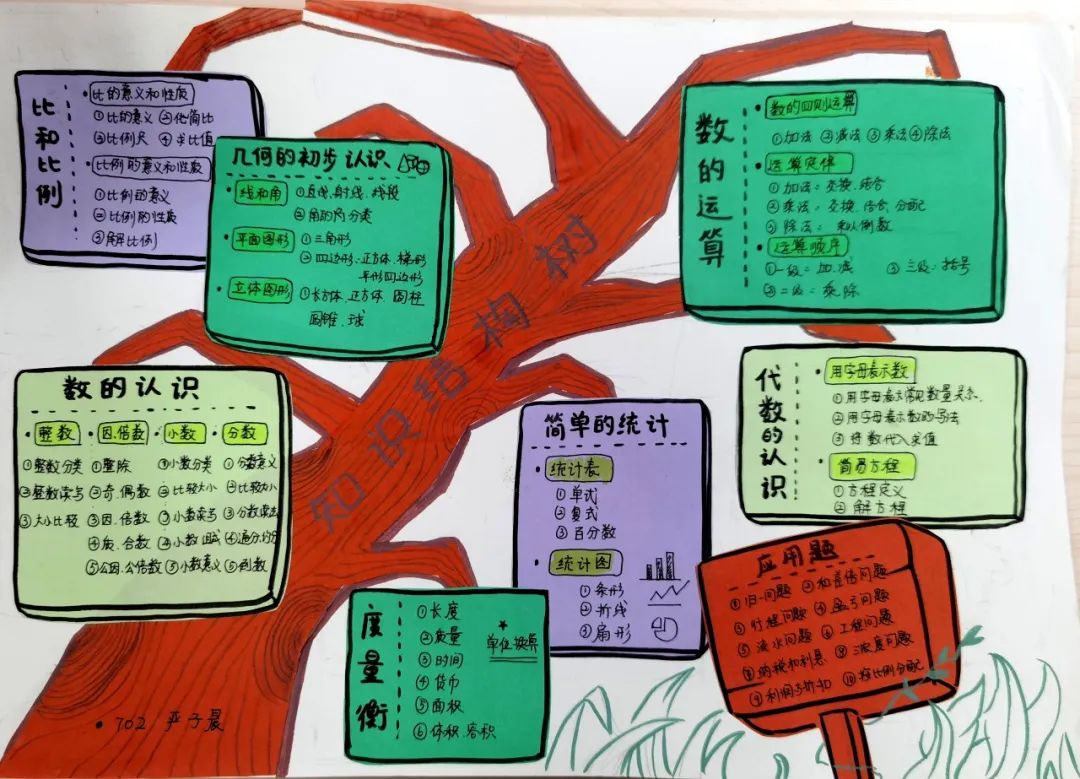 比和比例
•比的意义和性质
①比的意义 ②化简比
③比例尺 ④求比值
•比例的意义和性数
①比例的意义
②比例的性质
③解比例
几何的初步认识
•线和角 ①直线、射线、线段
②角的分类
•平面图形 ①三角形
②四边形:正方体、梯形
平形四边形
•立体图形 ①长方体、正方体 圆柱
圆锥、球
数的运算
•数的四则运算
①加法 ②减法 ③乘法 ④除法
•运算定律
①加法:交换、结合
②乘法:交换、结合、分配
③除法:乘以倒数
•运算顺序
①一级:加、减 ③三级:括号
②二级:乘、除
知识结构树
数的认识
•整数 •因、倍数 •小数 •分数
①整数分类 ①整除 ①小数分类 ①分数意义
②整数读写 ②奇、偶数 ②比较大小 ②比较大小
③大小比较 ③因、倍数 ③小数读写 ③分数读法
④质、合数 ④小数
⑤公因、公倍数 ⑤小数意义 ⑤倒数
简单的统计
•统计表
①单式
②复式
③百分数
•统计图
①条形
②折线
③扇形
代数的认识
•用字母表示数
①用字母表示常见数量关系、
②用字母表示数的写法
③将数代入求值
•简易方程
①方程定义
②解方程
度量衡
①长度
②质量
③时间
④货币
⑤面积
⑥体积、容积
单位换算
应用题
①归一问题 ②和差倍问题
③行程问题 ④盈亏问题
⑤流水问题 ⑥工程问题
⑧纳税和利息 浓度问题
⑨利润与折扣 ⑩按比例分配
•702 严子晨